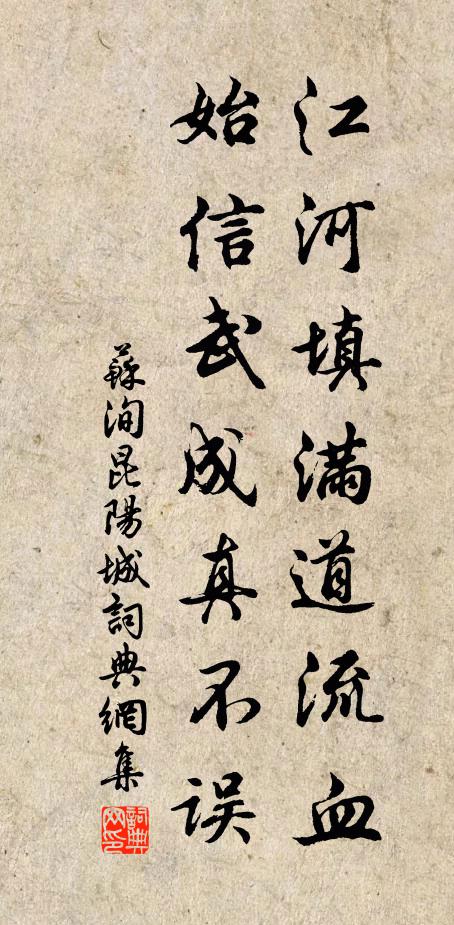 江河填滿道流血
始信武成真不误
蘇洵昆陽城詞典網集
詞典
网印